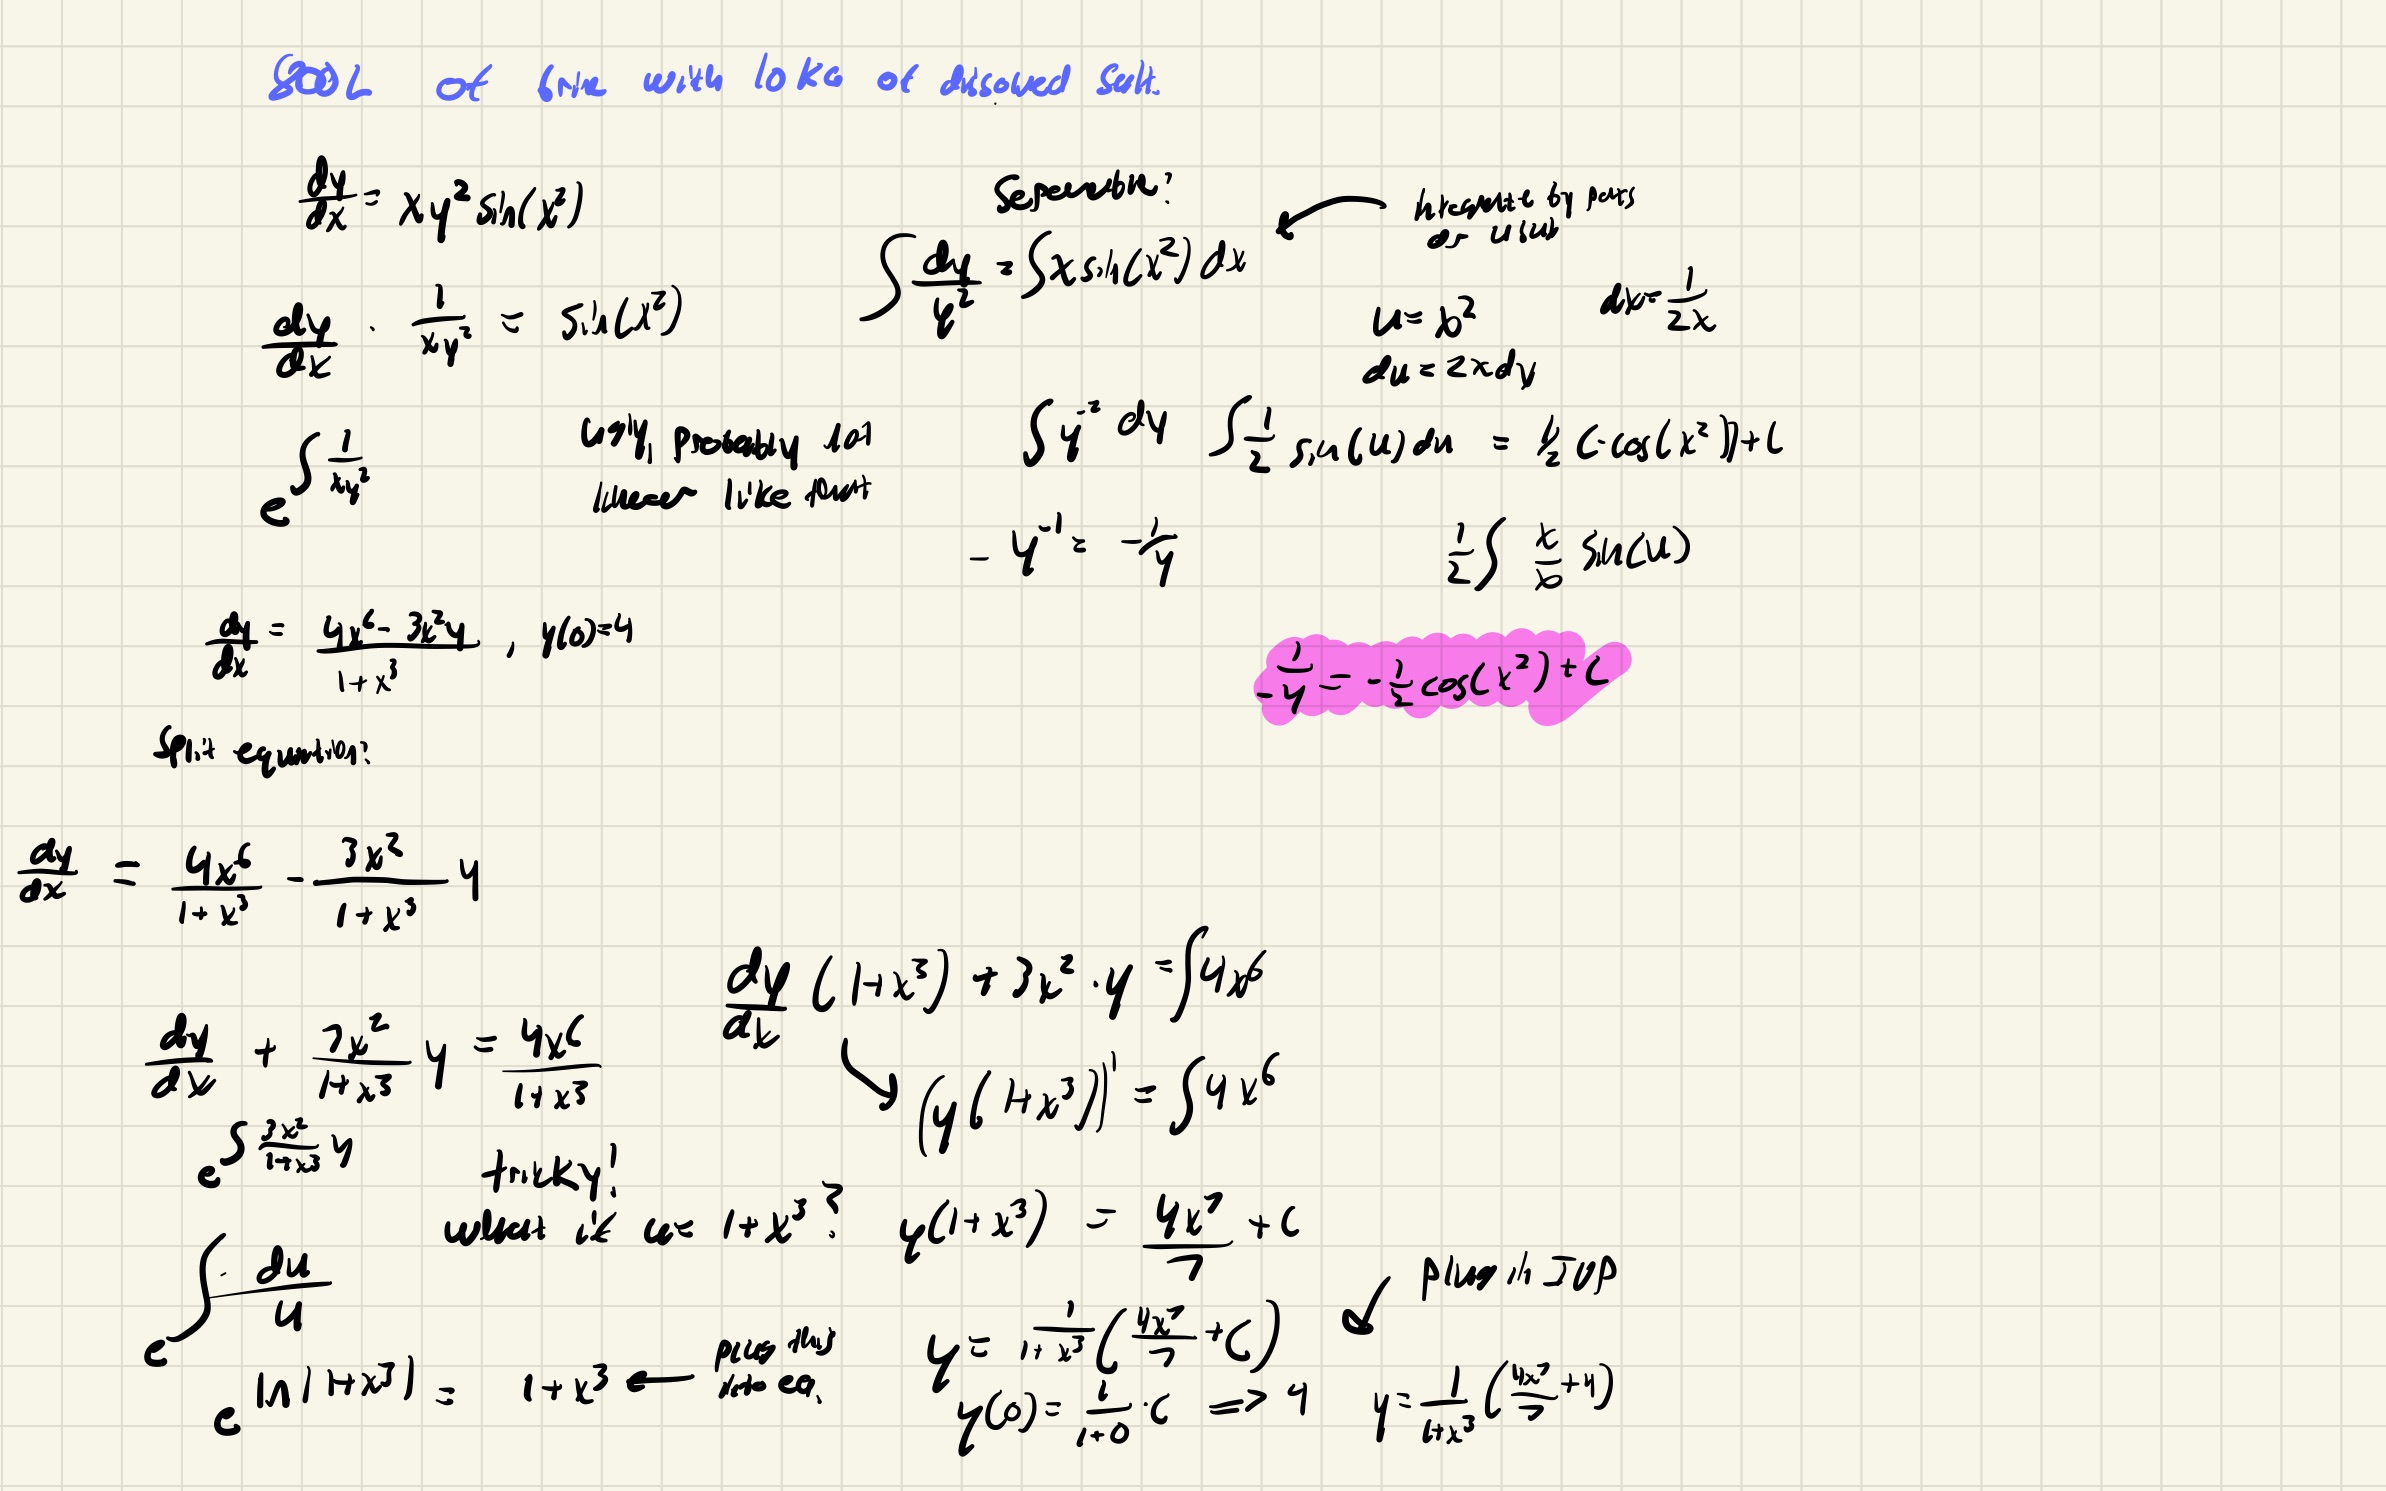 800L of brine with 10 KG of dissolved salt.
dy/dx = xy² sin(x²)
dy/dx · 1/(xy²) = sin(x²)
e^∫ 1/(xy²)
ugly, probably not
linear like that
Seperable?
∫ dy/y² = ∫ x sin(x²) dx
integrate by parts
or usub
u = x²
dx = 1/(2x)
du = 2x dy
∫ y⁻² dy ∫ 1/2 sin(u) du = 1/2 (-cos(x²)) + C
- y⁻¹ = - 1/y
1/2 ∫ x/x sin(u)
- 1/y = - 1/2 cos(x²) + C
dy/dx = (4x⁶ - 3x²y)/(1+x³) , y(0)=4
Split equation?
dy/dx = 4x⁶/(1+x³) - 3x²/(1+x³) y
dy/dx + 3x²/(1+x³) y = 4x⁶/(1+x³)
e^∫ 3x²/(1+x³) y
tricky!
what if u = 1+x³?
e^∫ du/u
e^ln|1+x³| = 1+x³
plug this
into eq.
dy/dx (1+x³) + 3x² · y = ∫ 4x⁶
(y(1+x³))' = ∫ 4x⁶
y(1+x³) = 4x⁷/7 + C
y = 1/(1+x³) (4x⁷/7 + C)
y(0) = 1/(1+0) · C => 4
plug in IVP
y = 1/(1+x³) (4x⁷/7 + 4)